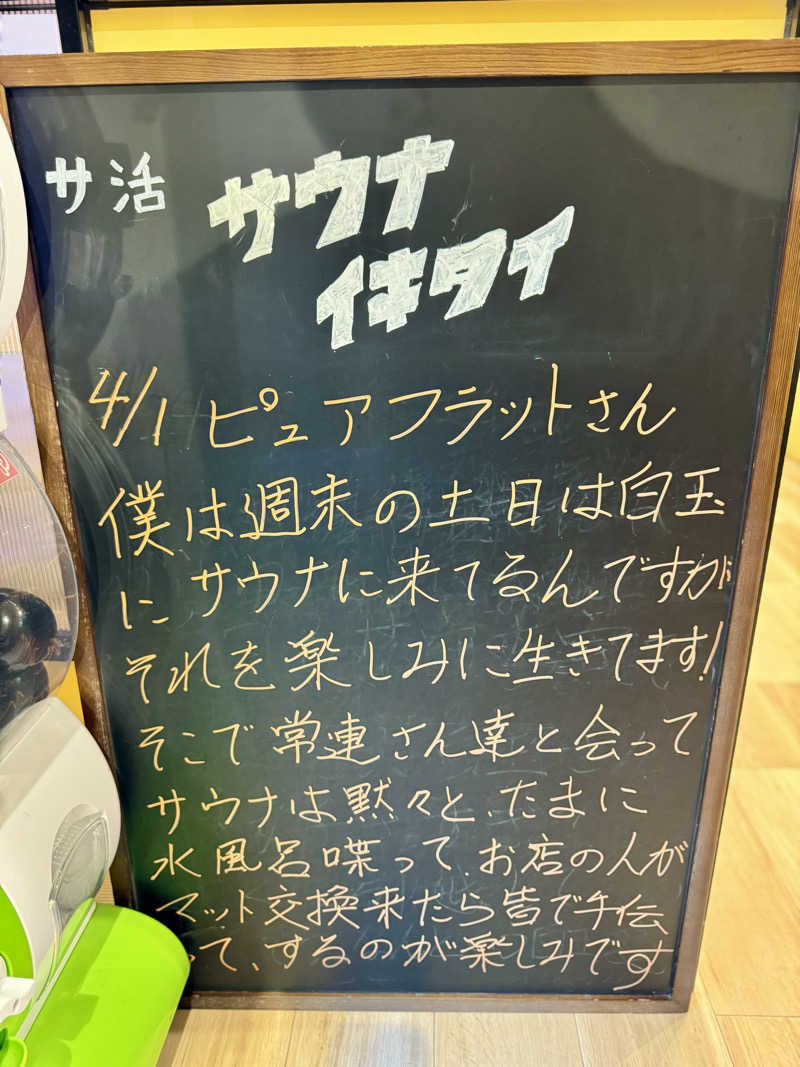 サ活 サウナ
イキタイ
4/1 ピュアフラットさん
僕は週末の土日は白玉
にサウナに来てるんですが
それを楽しみに生きてます!
そこで常連さん達と会って
サウナは黙々と、たまに
水風呂喋って、お店の人が
マット交換来たら皆で手伝
って、するのが楽しみです